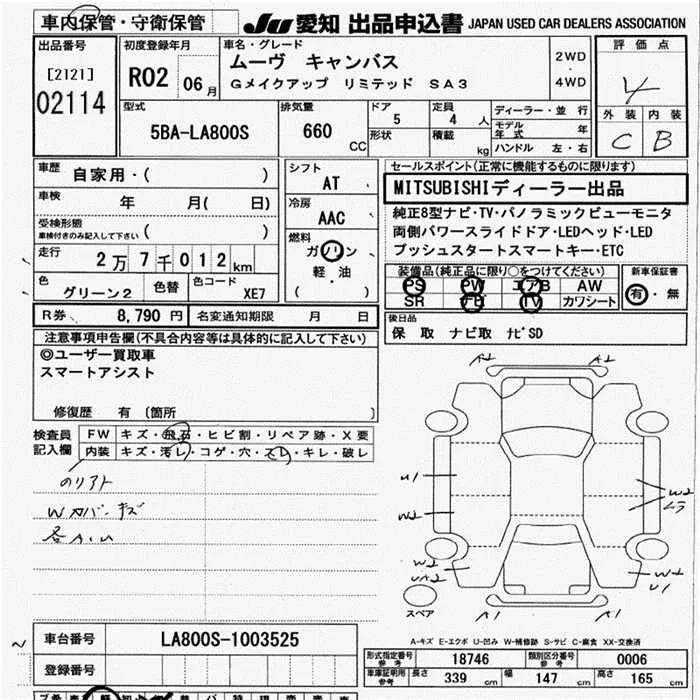 車内保管・守衛保管
JU 愛知 出品申込書 JAPAN USED CAR DEALERS ASSOCIATION
出品番号
[2121]
02114
初度登録年月
R02 06月
車名・グレード
ムーヴ キャンバス
Gメイクアップ リミテッド SA3
2WD
・
4WD
評価点
4
外装 内装
C B
型式
5BA-LA800S
排気量
660 CC
ドア
5
形状
定員
4 人
積載
kg
ディーラー・並行
モデル年式 年
ハンドル 左・右
車歴 自家用・( )
車検 年 月( 日)
受検形態
車検付きのみ記入して下さい ( )
走行 2万7千012km
色 グリーン2
色替
色コード XE7
シフト
AT
冷房
AAC
燃料
ガソリン
軽・油
( )
セールスポイント(正常に機能するものに限ります)
MITSUBISHIディーラー出品
純正8型ナビ・TV・パノラミックビューモニタ
両側パワースライドドア・LEDヘッド・LED
プッシュスタートスマートキー・ETC
装備品(純正品に限り○をつけてください)
PS PW エアB AW
SR ナビ TV カワシート
新車保証書
有・無
R券 8,790円
名変通知期限 月 日
後日品
保 取 ナビ取 ナビSD
注意事項申告欄(不具合内容等は具体的に記入して下さい)
◎ユーザー買取車
スマートアシスト
修復歴 有 〔箇所 〕
検査員記入欄
FW キズ・飛石・ヒビ割・リペア跡・X要
内装 キズ・汚レ・コゲ・穴・スレ・キレ・破レ
Wカバーキズ
各A.U
A2 A2
U1
W2
W2
W2
UA2
W2
U1
A1 A1
スペア
A-キズ E-エクボ U-凹み W-補修跡 S-サビ C-腐食 XX-交換済
車台番号 LA800S-1003525
登録番号
形式指定番号 参考 18746
類別区分番号 参考 0006
車庫証明用 参考 長さ 339 cm 幅 147 cm 高さ 165 cm